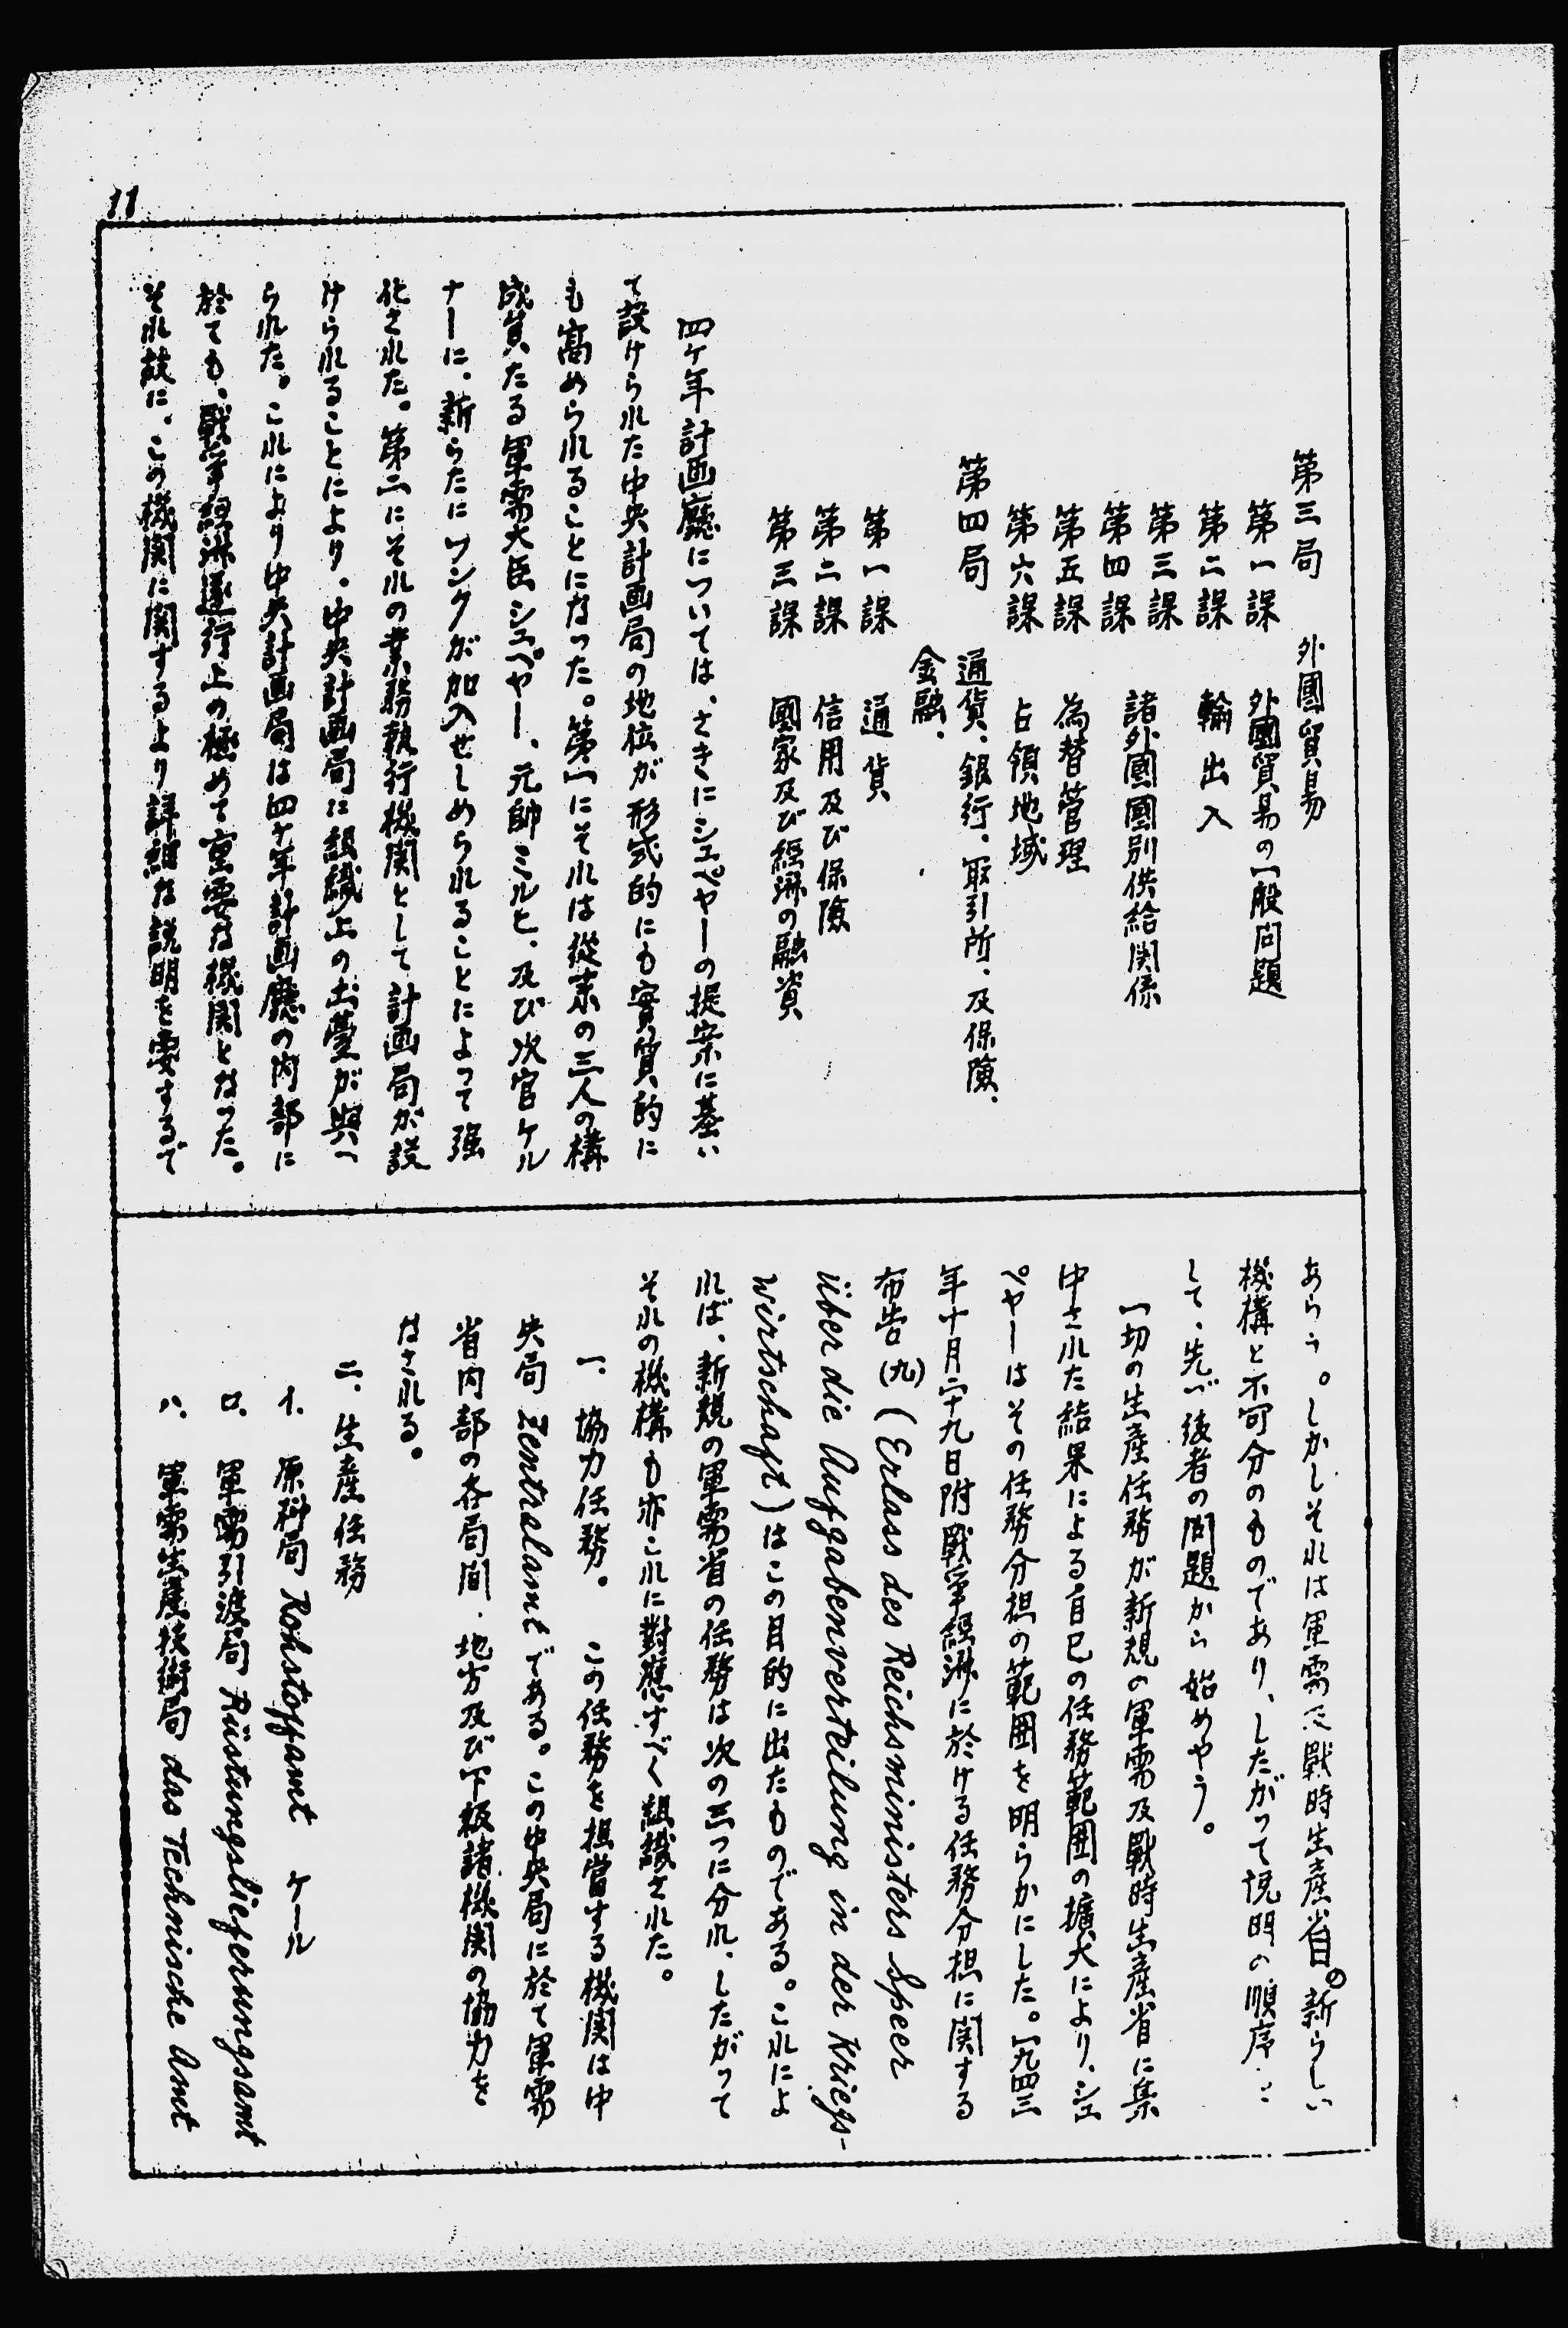 11
第三局　外國貿易
第一課　外國貿易の一般問題
第二課　輸出入
第三課
第四課　諸外國國別供給関係
第五課　為替管理
第六課　占領地域
第四局　通貨、銀行、取引所、及保險、
金融、
第一課　通貨
第二課　信用及び保險
第三課　國家及び經济の融資
四ヶ年計画廳については、さきにシェペヤーの提案に基い
て設けられた中央計画局の地位が形式的にも實質的に
も高められることになった。第一にそれは從来の三人の構
成員たる軍需大臣シェペヤー、元帥ミルヒ、及び次官ケル
ナーに、新らたにフンクが加入せしめられることによって强
化された。第二にそれの業務執行機関として計画局が設
けられることにより、中央計画局に組織上の土薹が與へ
られた。これにより中央計画局は四ヶ年計画廳の内部に
於ても、戰爭經济遂行上の極めて重要な機関となった。
それ故に、この機関に関するより詳細な説明を要するで
あらう。しかしそれは軍需及戰時生產省の新らしい
機構と不可分のものであり、したがって説明の順序と
して、先づ後者の問題から始めやう。
一切の生產任務が新規の軍需及戰時生產省に集
中された結果による自己の任務範囲の擴大により、シェ
ペヤーはその任務分担の範囲を明らかにした。一九四三
年十月二十九日附戰爭經济に於ける任務分担に関する
布告(九)（Erlass des Reichsministers Speer
über die Aufgabenverteilung in der Kriegs-
wirtschaft）はこの目的に出たものである。これによ
れば、新規の軍需省の任務は次の三つに分れ、したがって
それの機構も亦これに對應すべく組織された。
一、協力任務。　この任務を担當する機関は中
央局 Zentralamt である。この中央局に於て軍需
省内部の各局間、地方及び下級諸機関の協力を
なされる。
二、生産任務
イ、原料局 Rohstoffamt　ケール
ロ、軍需引渡局 Rüstungslieferungsamt
ハ、軍需生産技術局 das Technische Amt